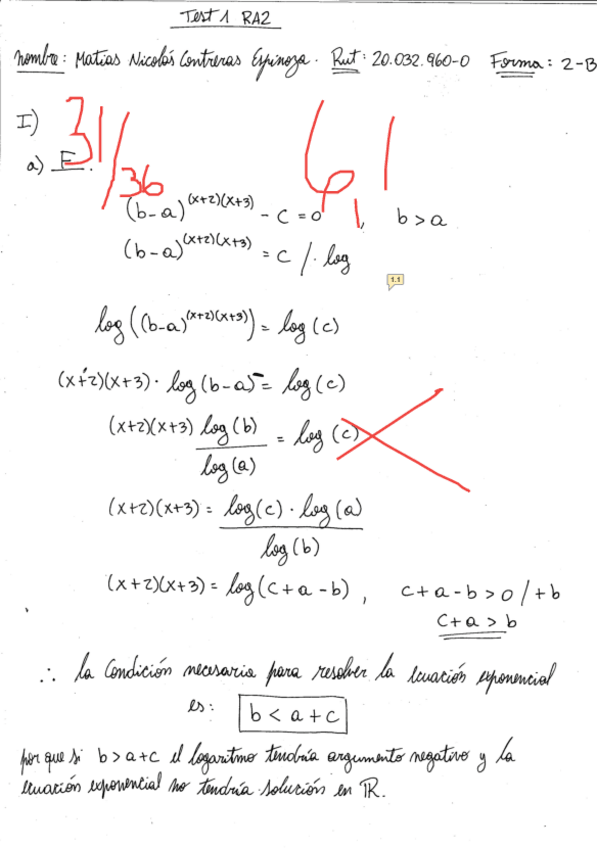 Test 1 RA2
Nombre: Matias Nicolás Contreras Espinoza. Rut: 20.032.960-0 Forma: 2-B
I)
31/36
6,1
a) F.
(b-a)^(x+2)(x+3) - c = 0, b > a
(b-a)^(x+2)(x+3) = c /· log
1.1
log((b-a)^(x+2)(x+3)) = log(c)
(x+2)(x+3) · log(b-a) = log(c)
(x+2)(x+3) log(b)/log(a) = log(c)
(x+2)(x+3) = log(c) · log(a)/log(b)
(x+2)(x+3) = log(c+a-b), c+a-b>0 /+b
c+a > b
∴ la Condición necesaria para resolver la ecuación exponencial
es: b < a + c
por que si b > a+c el logaritmo tendría argumento negativo y la
ecuación exponencial no tendría solución en ℝ.